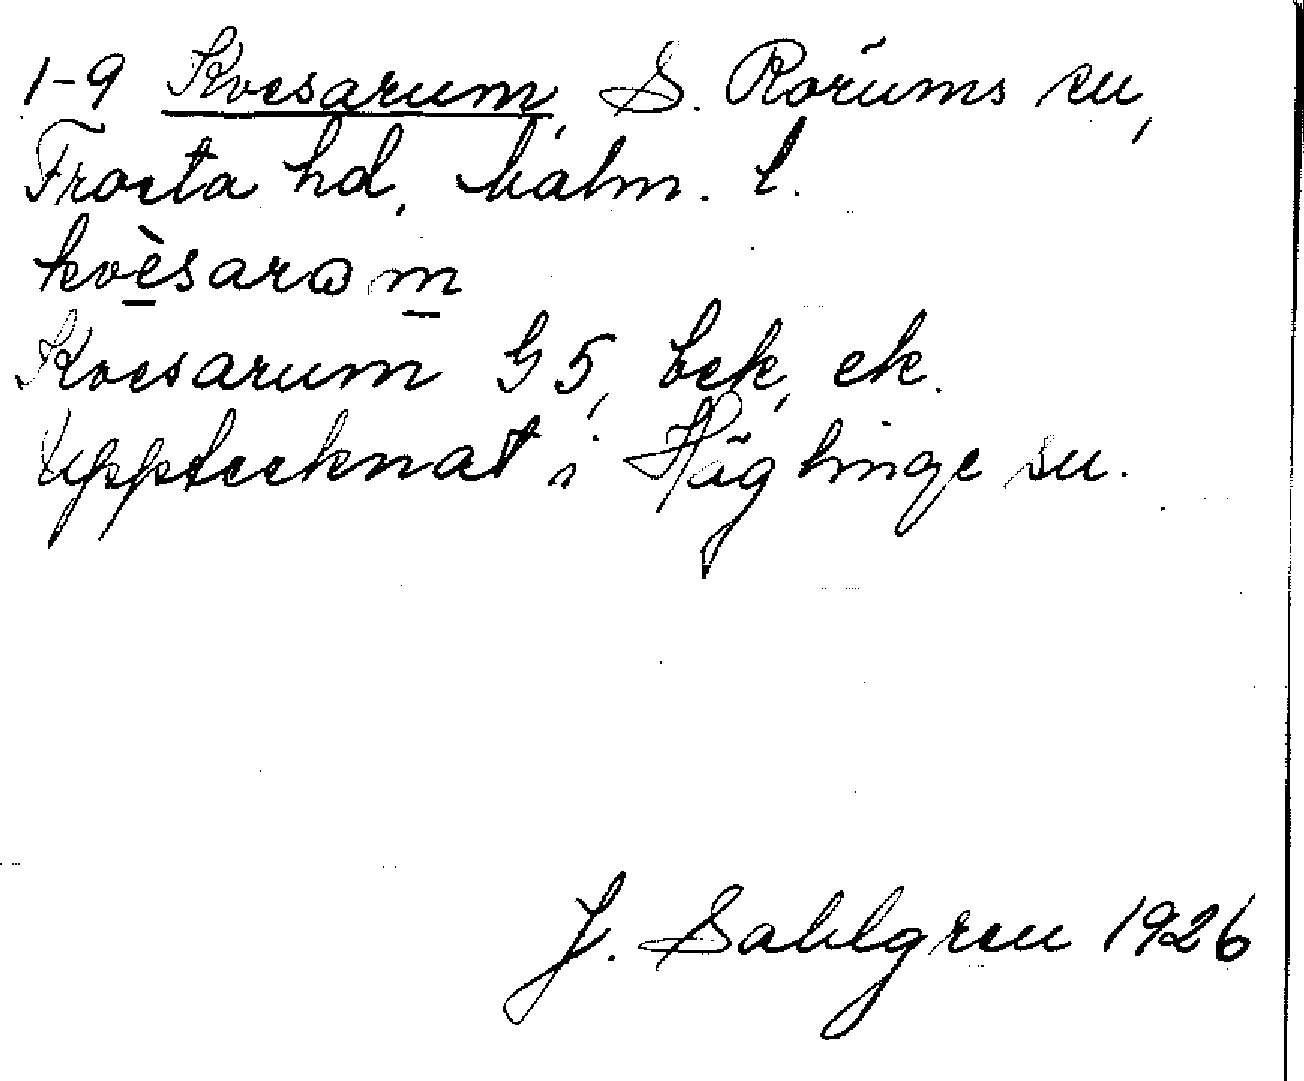 1-9 Kvesarum, S. Rörums sn,
Frosta hd, Malm. l.
kvèsaram
Kvesarum G5, bck, ek.
Upptecknat i Häglinge sn.
J. Sahlgren 1926